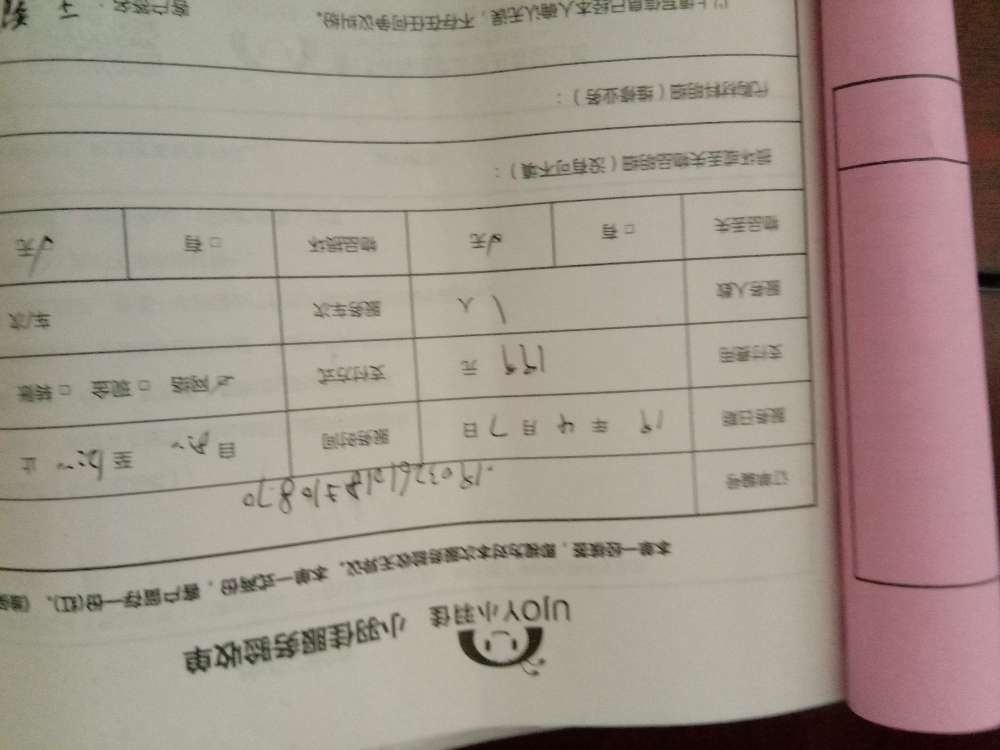 UJOY小羽佳 小羽佳服务验收单
本单一经核签，即视为对本次服务验收无异议。本单一式两份，客户留存一份(红)。
订单编号
服务日期 19 年 4 月 7 日 服务时间 自 至 止
支付费用 199 元 支付方式 ☑网络 □现金 □转账
服务人数 1 人 服务车次 车/次
物品丢失 □有 ☑无 物品损坏 □有 ☑无
损坏或丢失物品明细（没有可不填）：
代购材料明细（维修业务）：
以上填写信息已经本人确认无误，不存在任何争议纠纷。 客户签名：